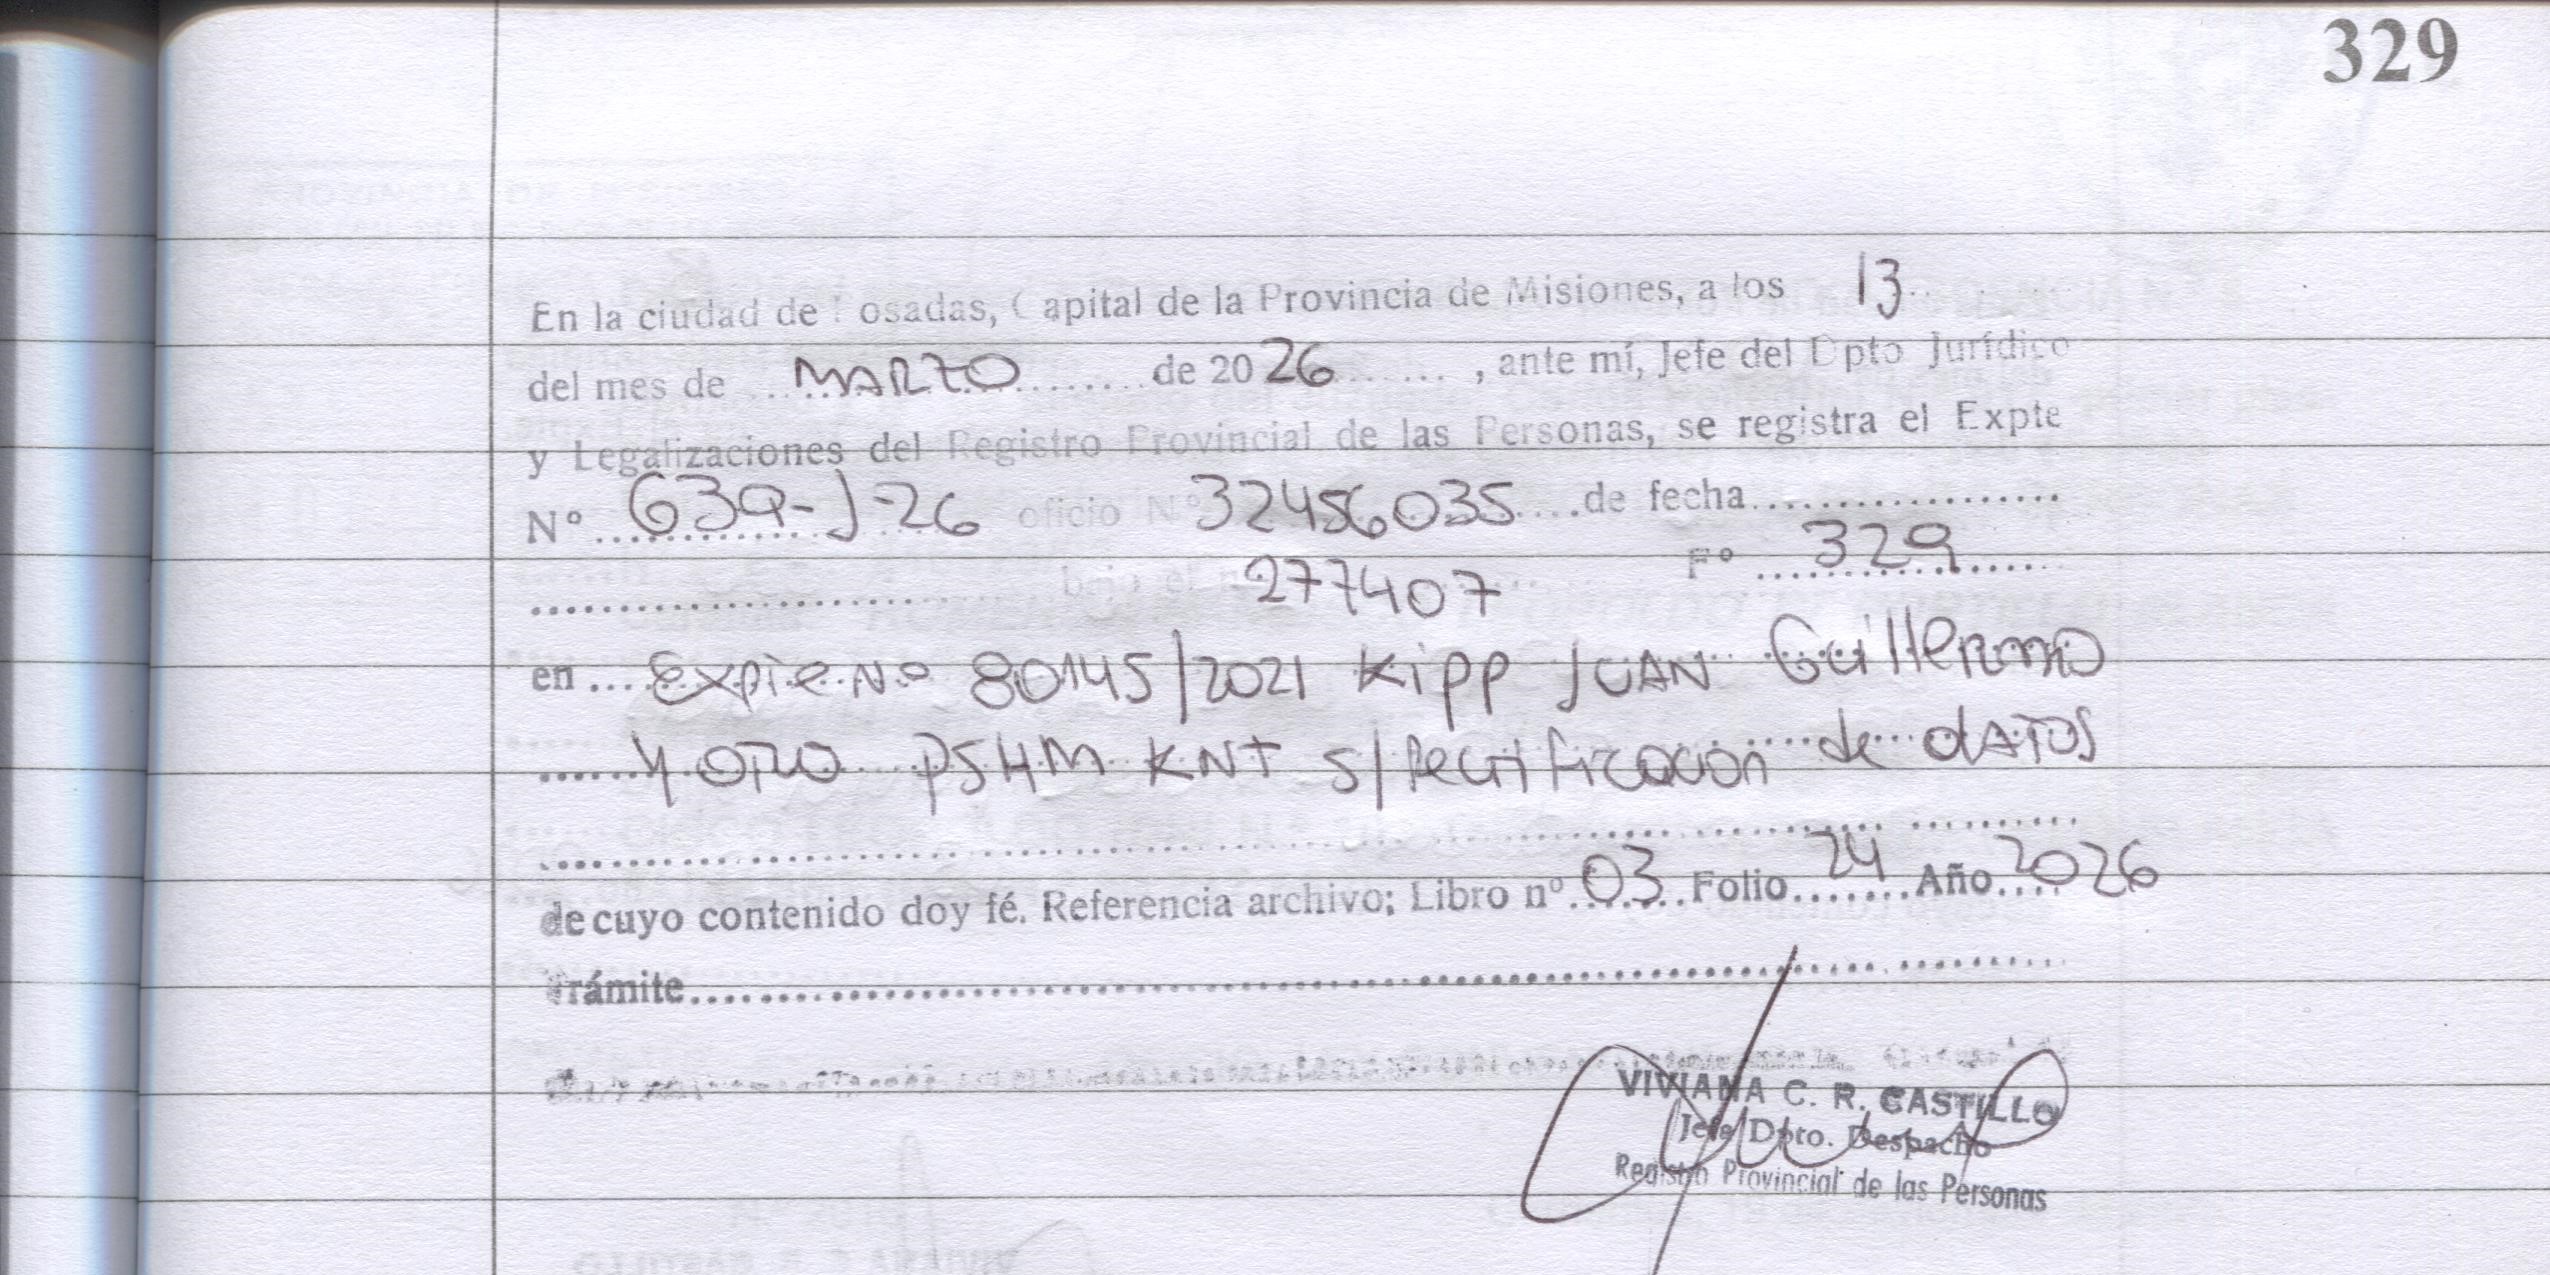 329
En la ciudad de Posadas, Capital de la Provincia de Misiones, a los 13
del mes de MARZO de 2026, ante mí, Jefe del Dpto Jurídico
y Legalizaciones del Registro Provincial de las Personas, se registra el Expte
Nº 639-J-26 oficio Nº 32456035 de fecha
bajo el nº 277407 Fº 329
en Expte Nº 80145/2021 Kipp JUAN Guillermo
y OTRO PSHM KNT s/ Rectificacion de dATOS
de cuyo contenido doy fé. Referencia archivo; Libro nº 03 Folio 24 Año 2026
Trámite
VIVIANA C. R. CASTILLO
Jefe Dpto. Despacho
Registro Provincial de las Personas